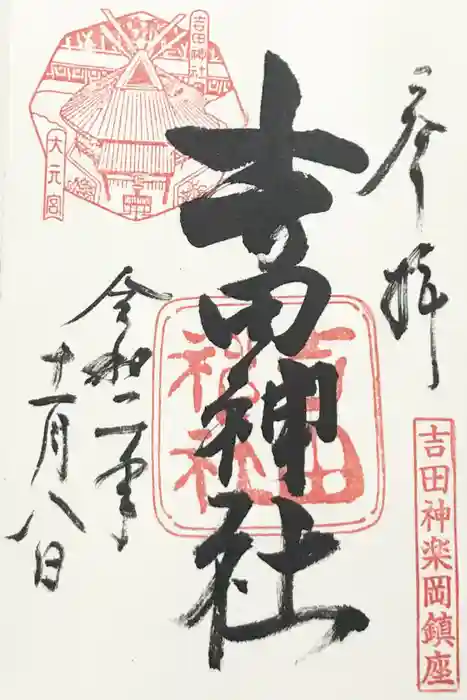 奉拝
吉田神楽岡鎮座
吉田神社
吉田神社
吉田神社
大元宮
令和二年
十一月八日